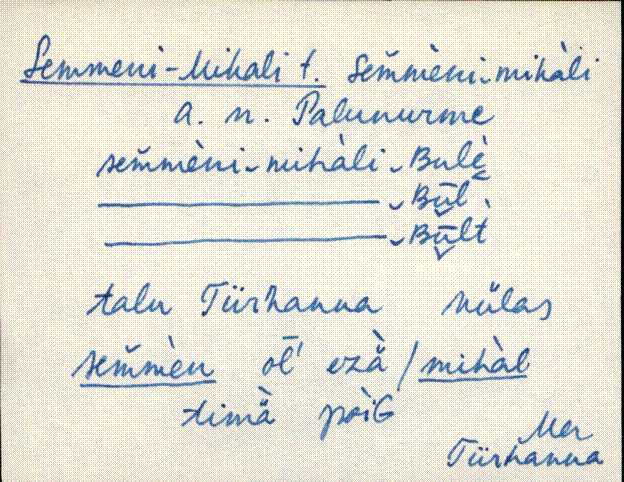 Semmeni-Mihali t. sem̆mèni-mihàli
a. n. Palunurme
sem̆mèni-mihàli-Bulè
——————-Būl
——————-Būlt
talu Türhanna külas
sem̆mèn ōl' ezä̀ / mihàl
timä̀ pòiG
Mer
Türhanna